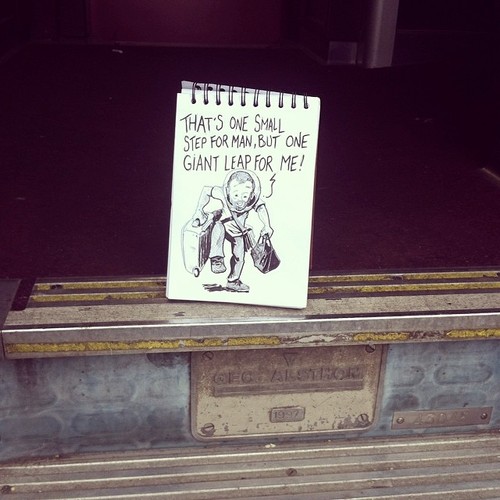 THAT'S ONE SMALL
STEP FOR MAN, BUT ONE
GIANT LEAP FOR ME!
GEC ALSTHOM
1997